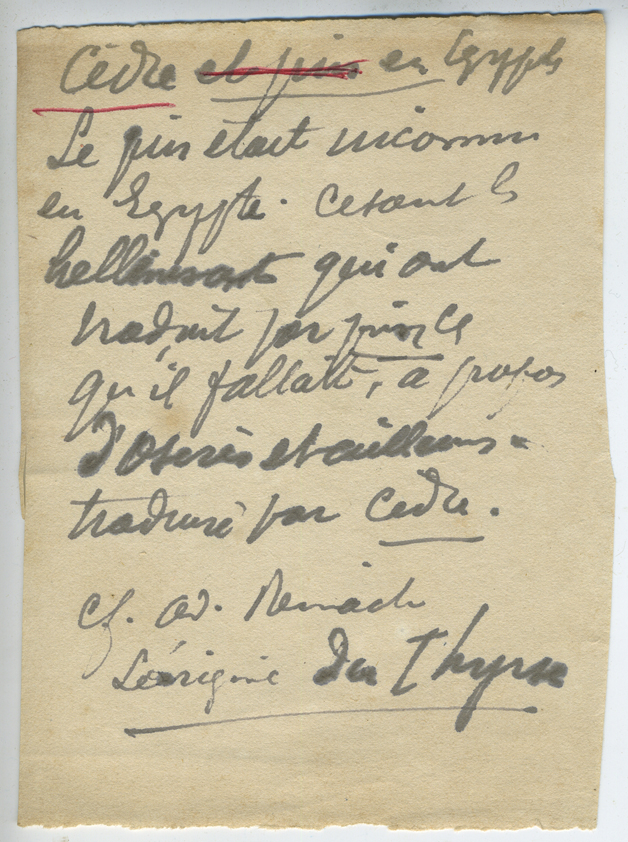 Cèdre et pin en Egypte
Le pin était inconnu
en Egypte. Ce sont les
hellénisants qui ont
traduit par pin, ce
qu'il fallait, à propos
d'Osiris et ailleurs -
traduire par cèdre.
Cf. Ad. Reinach
L'origine du Thyrse